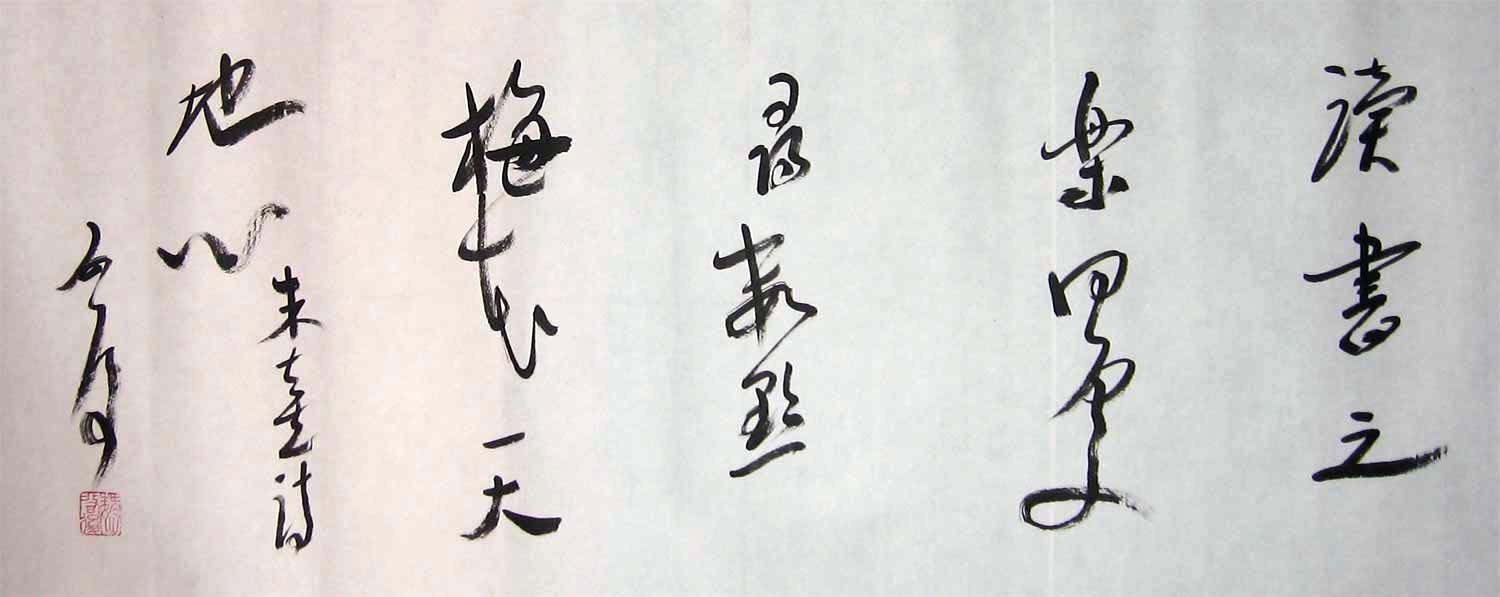 读書之
樂何處
尋数點
梅花天
地心
朱熹詩